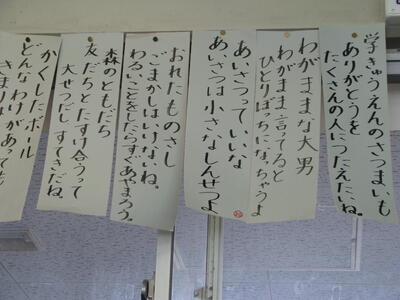 学きゅうえんのさつまいも
ありがとうを
たくさんの人につたえたいね。
わがままな大男
わがまま言てると
ひとりぼっちになっちゃうよ
あいさつっていいな
あいさつは小さなしんせつよ
おれたものさし
ごまかしはいけないね。
わるいことをしたらすぐあやまろう。
森のともだち
友だちとたすけ合うって
大せつだしすてきだね。
かくしたボール
どんなわけがあっても